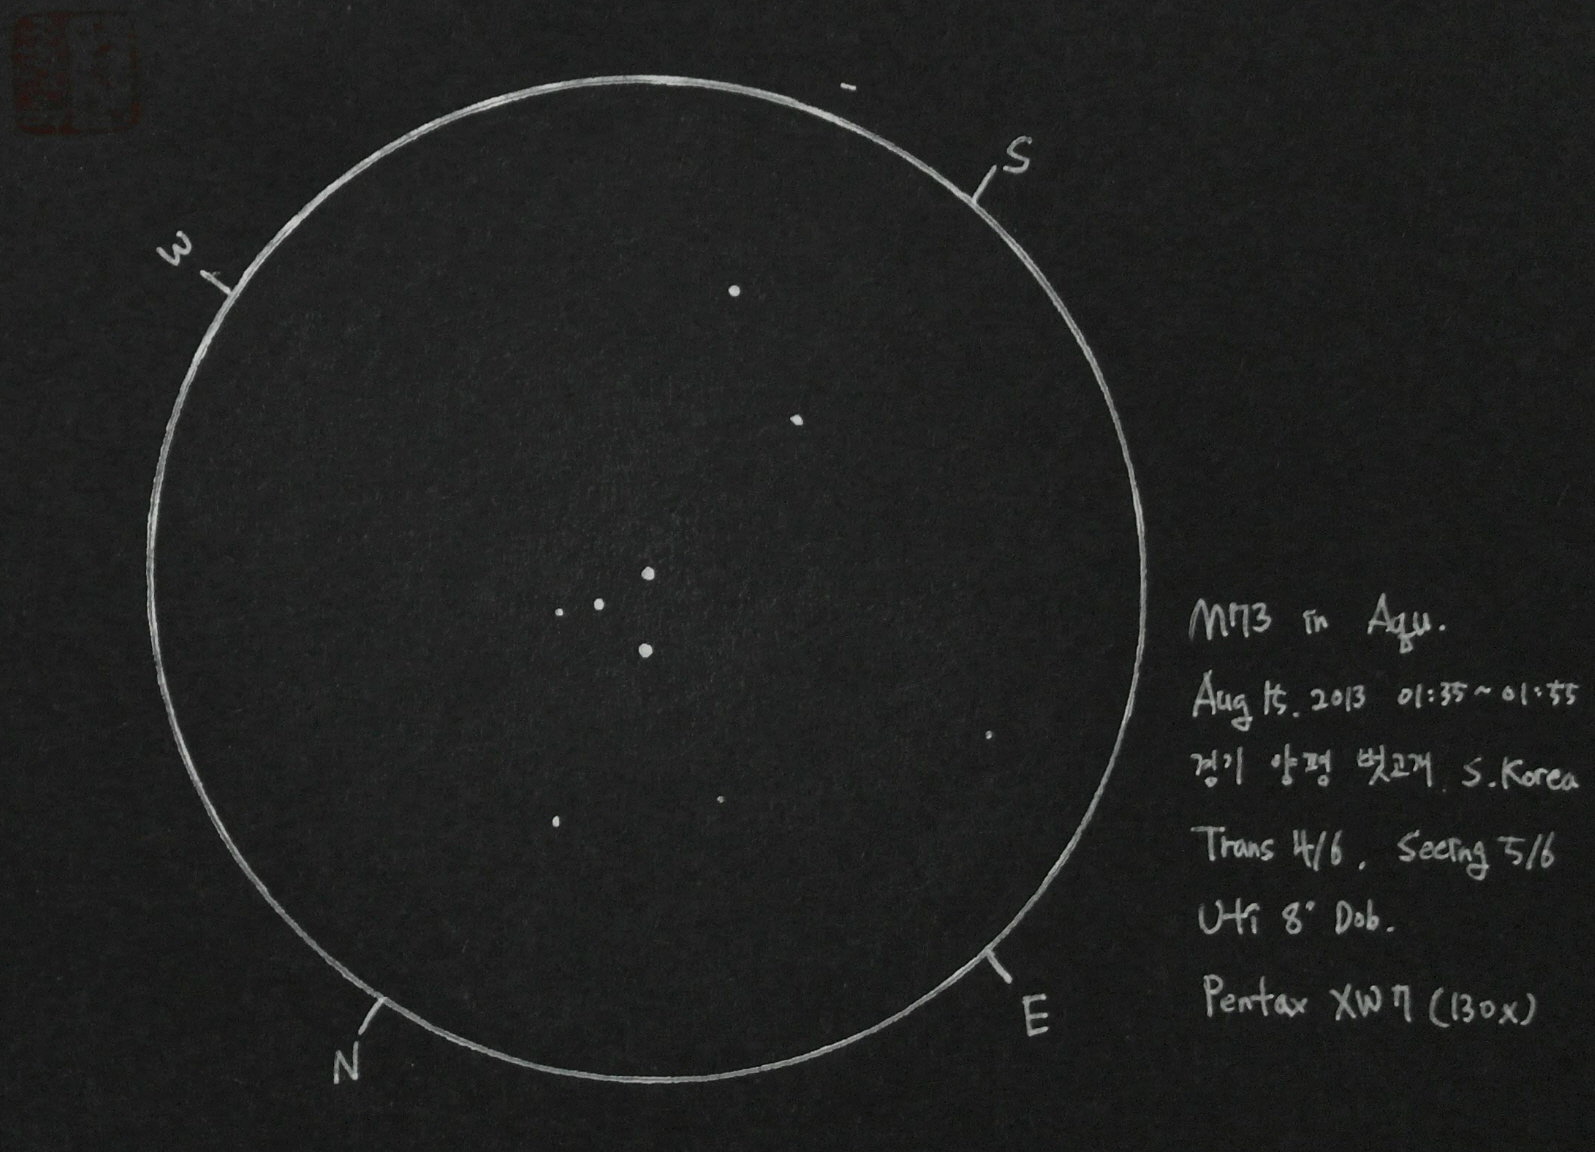 S
W
M73 in Aqu.
Aug 15. 2013 01:35~01:55
경기 양평 벗고개. S.Korea
Trans 4/6, Seeing 5/6
8" Dob.
E
Pentax XW7 (130x)
N